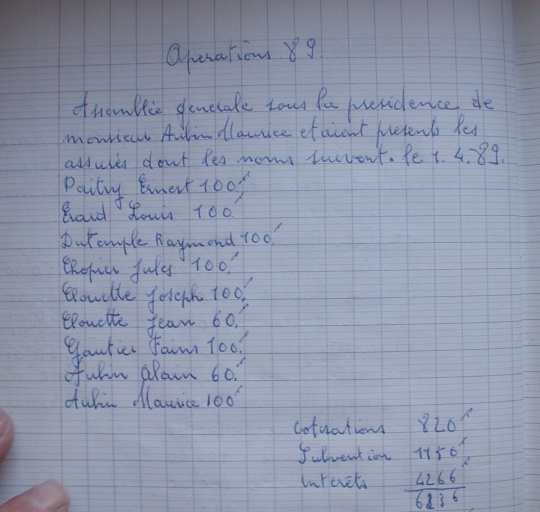 Operations 89.
Assemblée generale sous la presidence de
monsieur Aubin Maurice etaient presents les
assurés dont les noms suivent. le 1. 4. 89.
Ernest 100
Louis 100
Dutemple Raymond 100
Chopier Jules 100
Clouette Joseph 100
Clouette Jean 60
Gautier 100
Aubin Alain 60
Aubin Maurice 100
Cotisations 820
Subvention 1150
Interêts 4266
6236